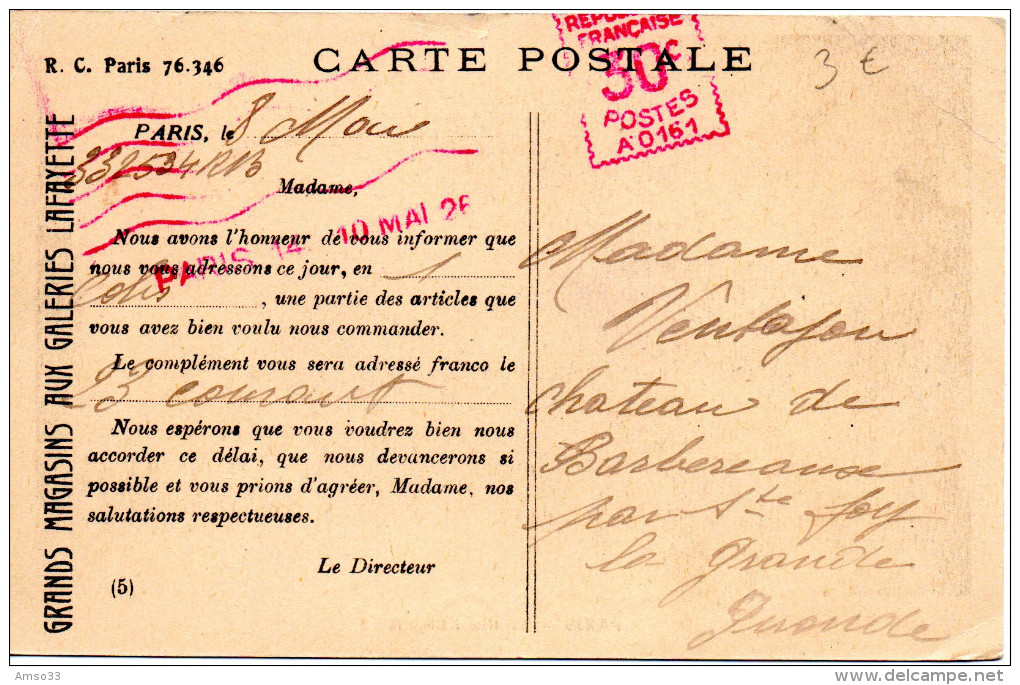 R. C. Paris 76.346
CARTE POSTALE
REPUBLIQUE
FRANÇAISE
30c
POSTES
A.0161
3 €
GRANDS MAGASINS AUX GALERIES LAFAYETTE
PARIS, le 8 Mai
332594 RB
Madame,
PARIS 14 10 MAI 26
Nous avons l'honneur de vous informer que
nous vous adressons ce jour, en 1
Colis, une partie des articles que
vous avez bien voulu nous commander.
Le complément vous sera adressé franco le
23 courant
Nous espérons que vous voudrez bien nous
accorder ce délai, que nous devancerons si
possible et vous prions d'agréer, Madame, nos
salutations respectueuses.
Le Directeur
(5)
Madame
Ventajou
chateau de
Barbereausse
par Ste foy
la grande
Gironde
Amso33
delcampe.net